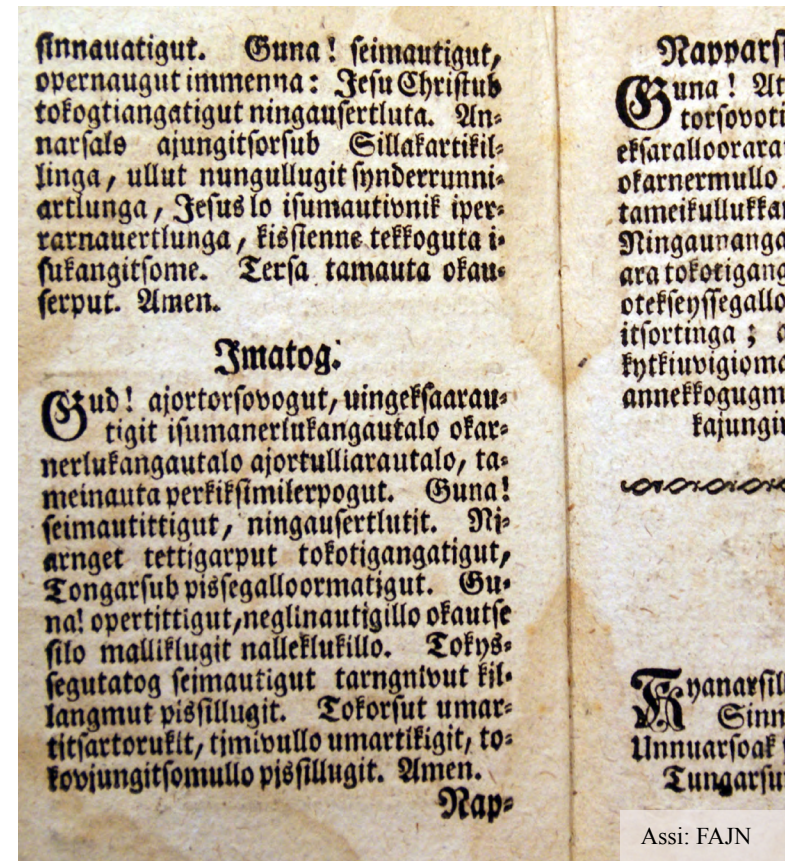 sinnauatigut. Guna! seimautigut,
opernaugut immenna: Jesu Christub
tokogtiangatigut ningausertluta. An-
narsalo ajungitsorsub Sillakartikil-
linga, ullut nungullugit synderrunni-
artlunga, Jesus lo isumautivnik iper-
rarnauertlunga, kissienne tekkoguta i-
sukangitsome. Tersa tamauta okau-
serput. Amen.
Imatog:
Gud! ajortorsovogut, uingeksaarau-
tigit isumanerlukangautalo okar-
nerlukangautalo ajortulliarautalo, ta-
meinauta perkiksimilerpogut. Guna!
seimautittigut, ningausertlutit. Ni-
arnget tettigarput tokotigangatigut,
Tongarsub pissegalloormatigut. Gu-
na! opertittigut, neglinautigillo okautse
silo malliklugit nalleklukillo. Tokys-
segutatog seimautigut tarngnivut kil-
langmut pissillugit. Tokorsut umar-
titsartorukit, timivullo umartikigit, to-
kovjungitsomullo pissillugit. Amen.
Nap-
Napparsi
Guna! At
torsovoti
eksaralloorara
okarnermullo
tameikullukka
Ningaunanga
ara tokotigang
otekseyssegallo
itsortinga;
kytkiuvigioma
annekkogugm
kajungi
yanarsill
Sinn
Unnuarsoak
Tungarsu
Assi: FAJN